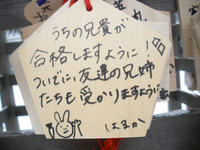 うちの兄貴が
合格しますように!
ついでに友達の兄姉
たちも受かりますように
はるか